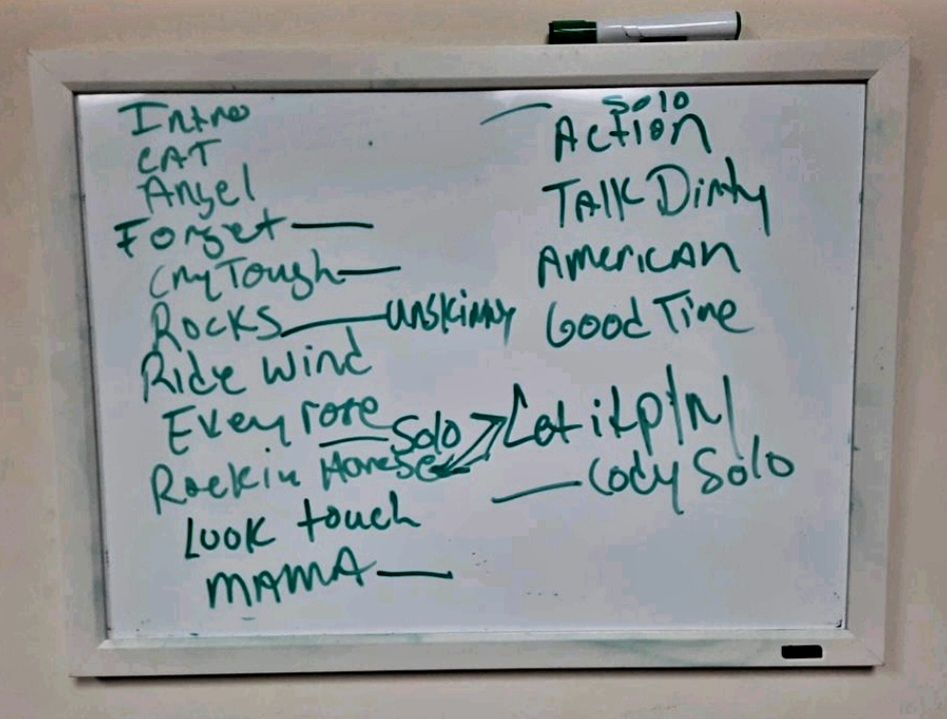 Intro
CAT
Angel
Forget
Cry Tough
Rocks Unskinny
Ride Wind
Every rose
Solo
Rockin Horse
Look touch
MAMA
Solo
Action
Talk Dirty
American
Good Time
Let it play
Cody Solo